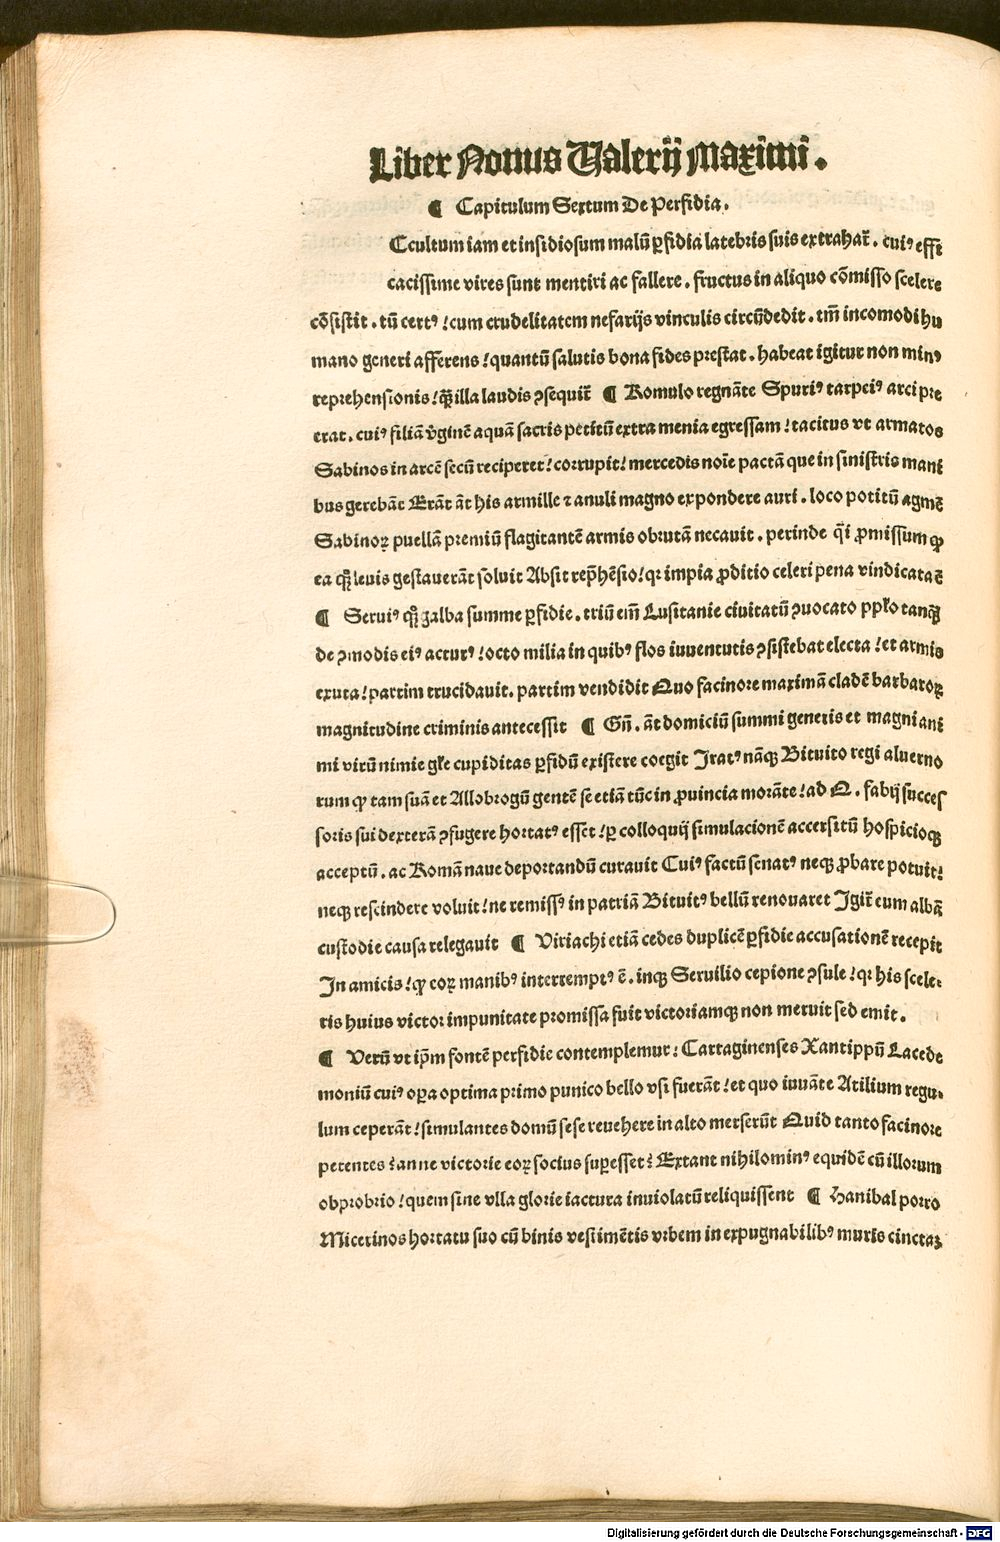 Liber Nonus Valerij Maximi.
¶ Capitulum Sextum De Perfidia.
Ccultum iam et insidiosum malū ꝑfidia latebris suis extrahat᷑. cuiꝰ effi
cacissime vires sunt mentiri ac fallere. fructus in aliquo cōmisso scelere
cōsistit. tū certꝰ! cum crudelitatem nefarijs vinculis circūdedit. tm̄ incomodi hu
mano generi afferens! quantū salutis bona fides prestat. habeat igitur non minꝰ
reprehensionis! q̄ꝫ illa laudis ꝯsequit᷑ ¶ Romulo regnāte Spuriꝰ tarpeiꝰ arci pre
erat. cuiꝰ filiā v̄ginē aquā sacris petitū extra menia egressam! tacitus vt armatos
Sabinos in arcē secū reciperet! corrupit! mercedis noīe pactā que in sinistris mani
bus gerebāt Erāt āt his armille ⁊ anuli magno expondere auri. loco potitū agmē
Sabinoꝝ puellā premiū flagitantē armis obrutā necauit. perinde q̄i ꝓmissum ꝙ
ea q̄ꝫ leuis gestauerāt soluit Absit rep̄hēsio! qꝛ impia ꝓditio celeri pena vindicata ē
¶ Seruiꝰ qꝫ galba summe ꝑfidie. triū em̄ Lusitanie ciuitatū ꝯuocato pplo tanqꝫ
de ꝯmodis eiꝰ acturꝰ! octo milia in quibꝰ flos iuuentutis ꝯsistebat electa! et armis
exuta! partim trucidauit. partim vendidit Quo facinore maximā cladē barbaroꝝ
magnitudine criminis antecessit ¶ Gn̄. āt domiciū summi generis et magni ani
mi virū nimie gl̄e cupiditas ꝑfidū existere coegit Iratꝰ nāqꝫ Bituito regi aluerno
rum ꝙ tam suā et Allobrogū gentē se etiā tūc in ꝓuincia morāte! ad Q. fabij succes
soris sui dexterā ꝯfugere hortatꝰ esset! ꝑ colloquij simulacionē accersitū hospicioqꝫ
acceptū. ac Romā naue deportandū curauit Cuiꝰ factū senatꝰ neqꝫ ꝓbare potuit!
neqꝫ rescindere voluit! ne remissꝰ in patriā Bituitꝰ bellū renouaret Igit᷑ eum albā
custodie causa relegauit ¶ Viriachi etiā cedes duplicē ꝑfidie accusationē recepit
In amicis! ꝙ eoꝝ manibꝰ interremptꝰ ē. inqꝫ Seruilio cepione ꝯsule! qꝛ his scele-
ris huius victor impunitate promissa fuit victoriamqꝫ non meruit sed emit.
¶ Verū vt ip̄m fontē perfidie contemplemur: Cartaginenses Xantippū Lacede
moniū cuiꝰ oꝑa optima primo punico bello vsi fuerāt! et quo iuuāte Atilium regu-
lum ceperāt! simulantes domū sese reuehere in alto merserūt Quid tanto facinore
petentes? an ne victorie eoꝝ socius suꝑesset? Extant nihilominꝰ equidē cū illorum
obprobrio! quem sine vlla glorie iactura inuiolatū reliquissent ¶ Hanibal porro
Micerinos hortatu suo cū binis vestimētis vrbem inexpugnabilibꝰ muris cinctaꝫ
Digitalisierung gefördert durch die Deutsche Forschungsgemeinschaft - DFG